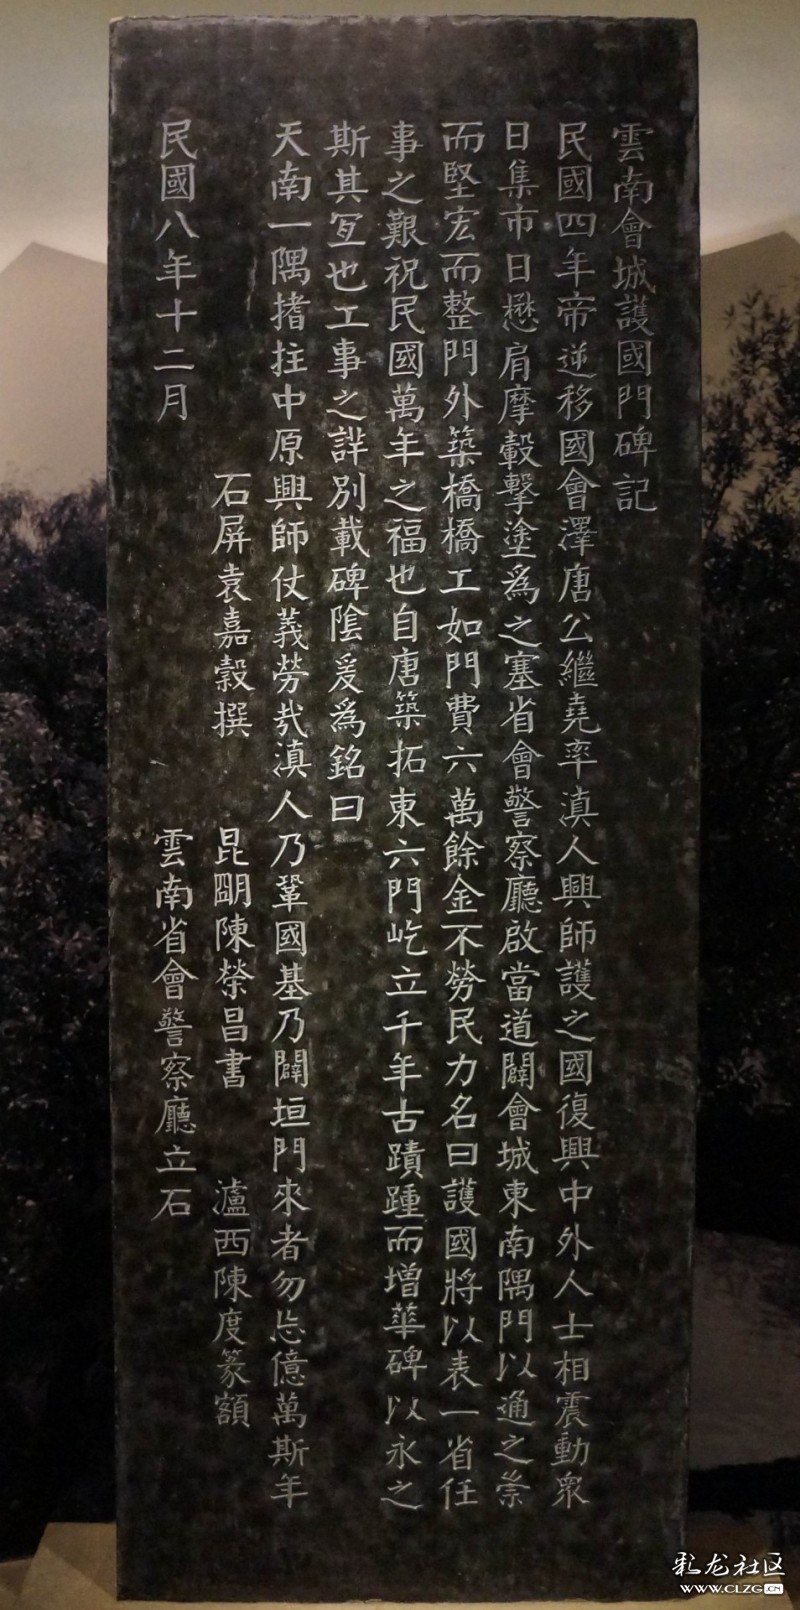 雲南會城護國門碑記
民國四年帝逆移國會澤唐公繼堯率滇人興師護之國復興中外人士相震動衆
日集市日懋肩摩轂擊塗爲之塞省會警察廳啟當道闢會城東南隅門以通之崇
而堅宏而整門外築橋橋工如門費六萬餘金不勞民力名曰護國將以表一省任
事之艱祝民國萬年之福也自唐築拓東六門屹立千年古蹟踵而增華碑以永之
斯其宜也工事之詳別載碑陰爰爲銘曰
天南一隅搘拄中原興師仗義勞哉滇人乃鞏國基乃闢垣門來者勿忘億萬斯年
石屏袁嘉穀撰 昆朙陳榮昌書 瀘西陳度篆額
民國八年十二月 雲南省會警察廳立石
彩龙社区
WWW.CLZG.CN